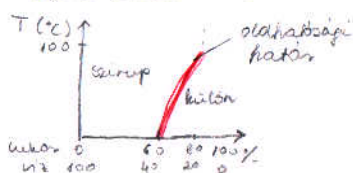 T (°C)
100
oldhatósági
határ
szirup
külön
cukor 0 60 80 100 %
víz 100 40 20 0